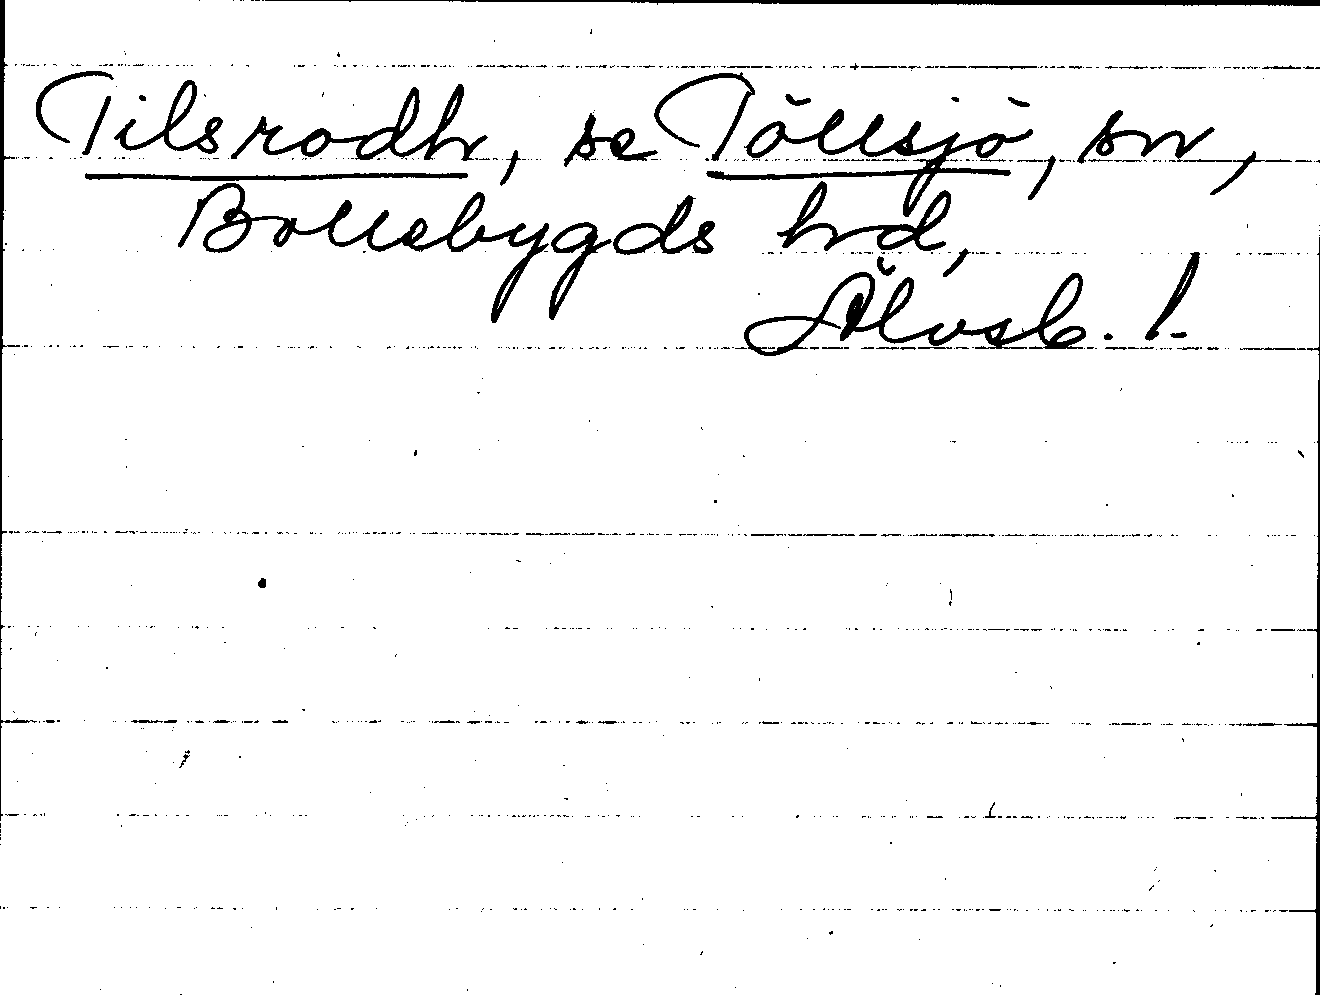 Tilsrodh, se Töllsjö, sn,
Bollebygds hrd,
Älvsb. l.